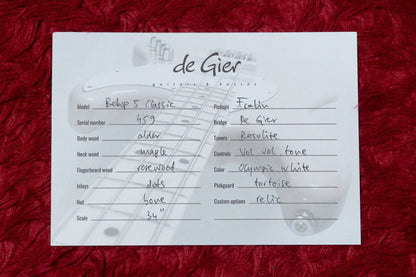 de Gier
guitars & basses
Model Bebop 5 Classic
Serial number 459
Body wood alder
Neck wood maple
Fingerboard wood rosewood
Inlays dots
Nut bone
Scale 34"
Pickups Fralin
Bridge De Gier
Tuners Resolite
Controls Vol vol tone
Color Olympic White
Pickguard tortoise
Custom options relic